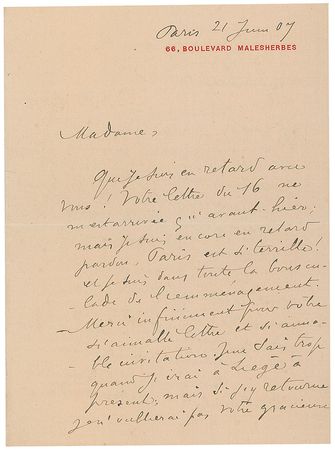 Paris 21 Juin 07
66, BOULEVARD MALESHERBES
Madame,
Que je suis en retard avec
vous! Votre lettre du 16 ne
m'est arrivée qu'avant-hier;
mais je suis encore en retard
pardon, Paris est si terrible!
et je suis dans toute la bouscu-
lade de l'emménagement.
Merci infiniment pour votre
si aimable lettre et si aima-
ble invitation. Je ne sais trop
quand j'irai à Liège à
présent, mais si j'y retourne
je n'oublierai pas votre gracieuse